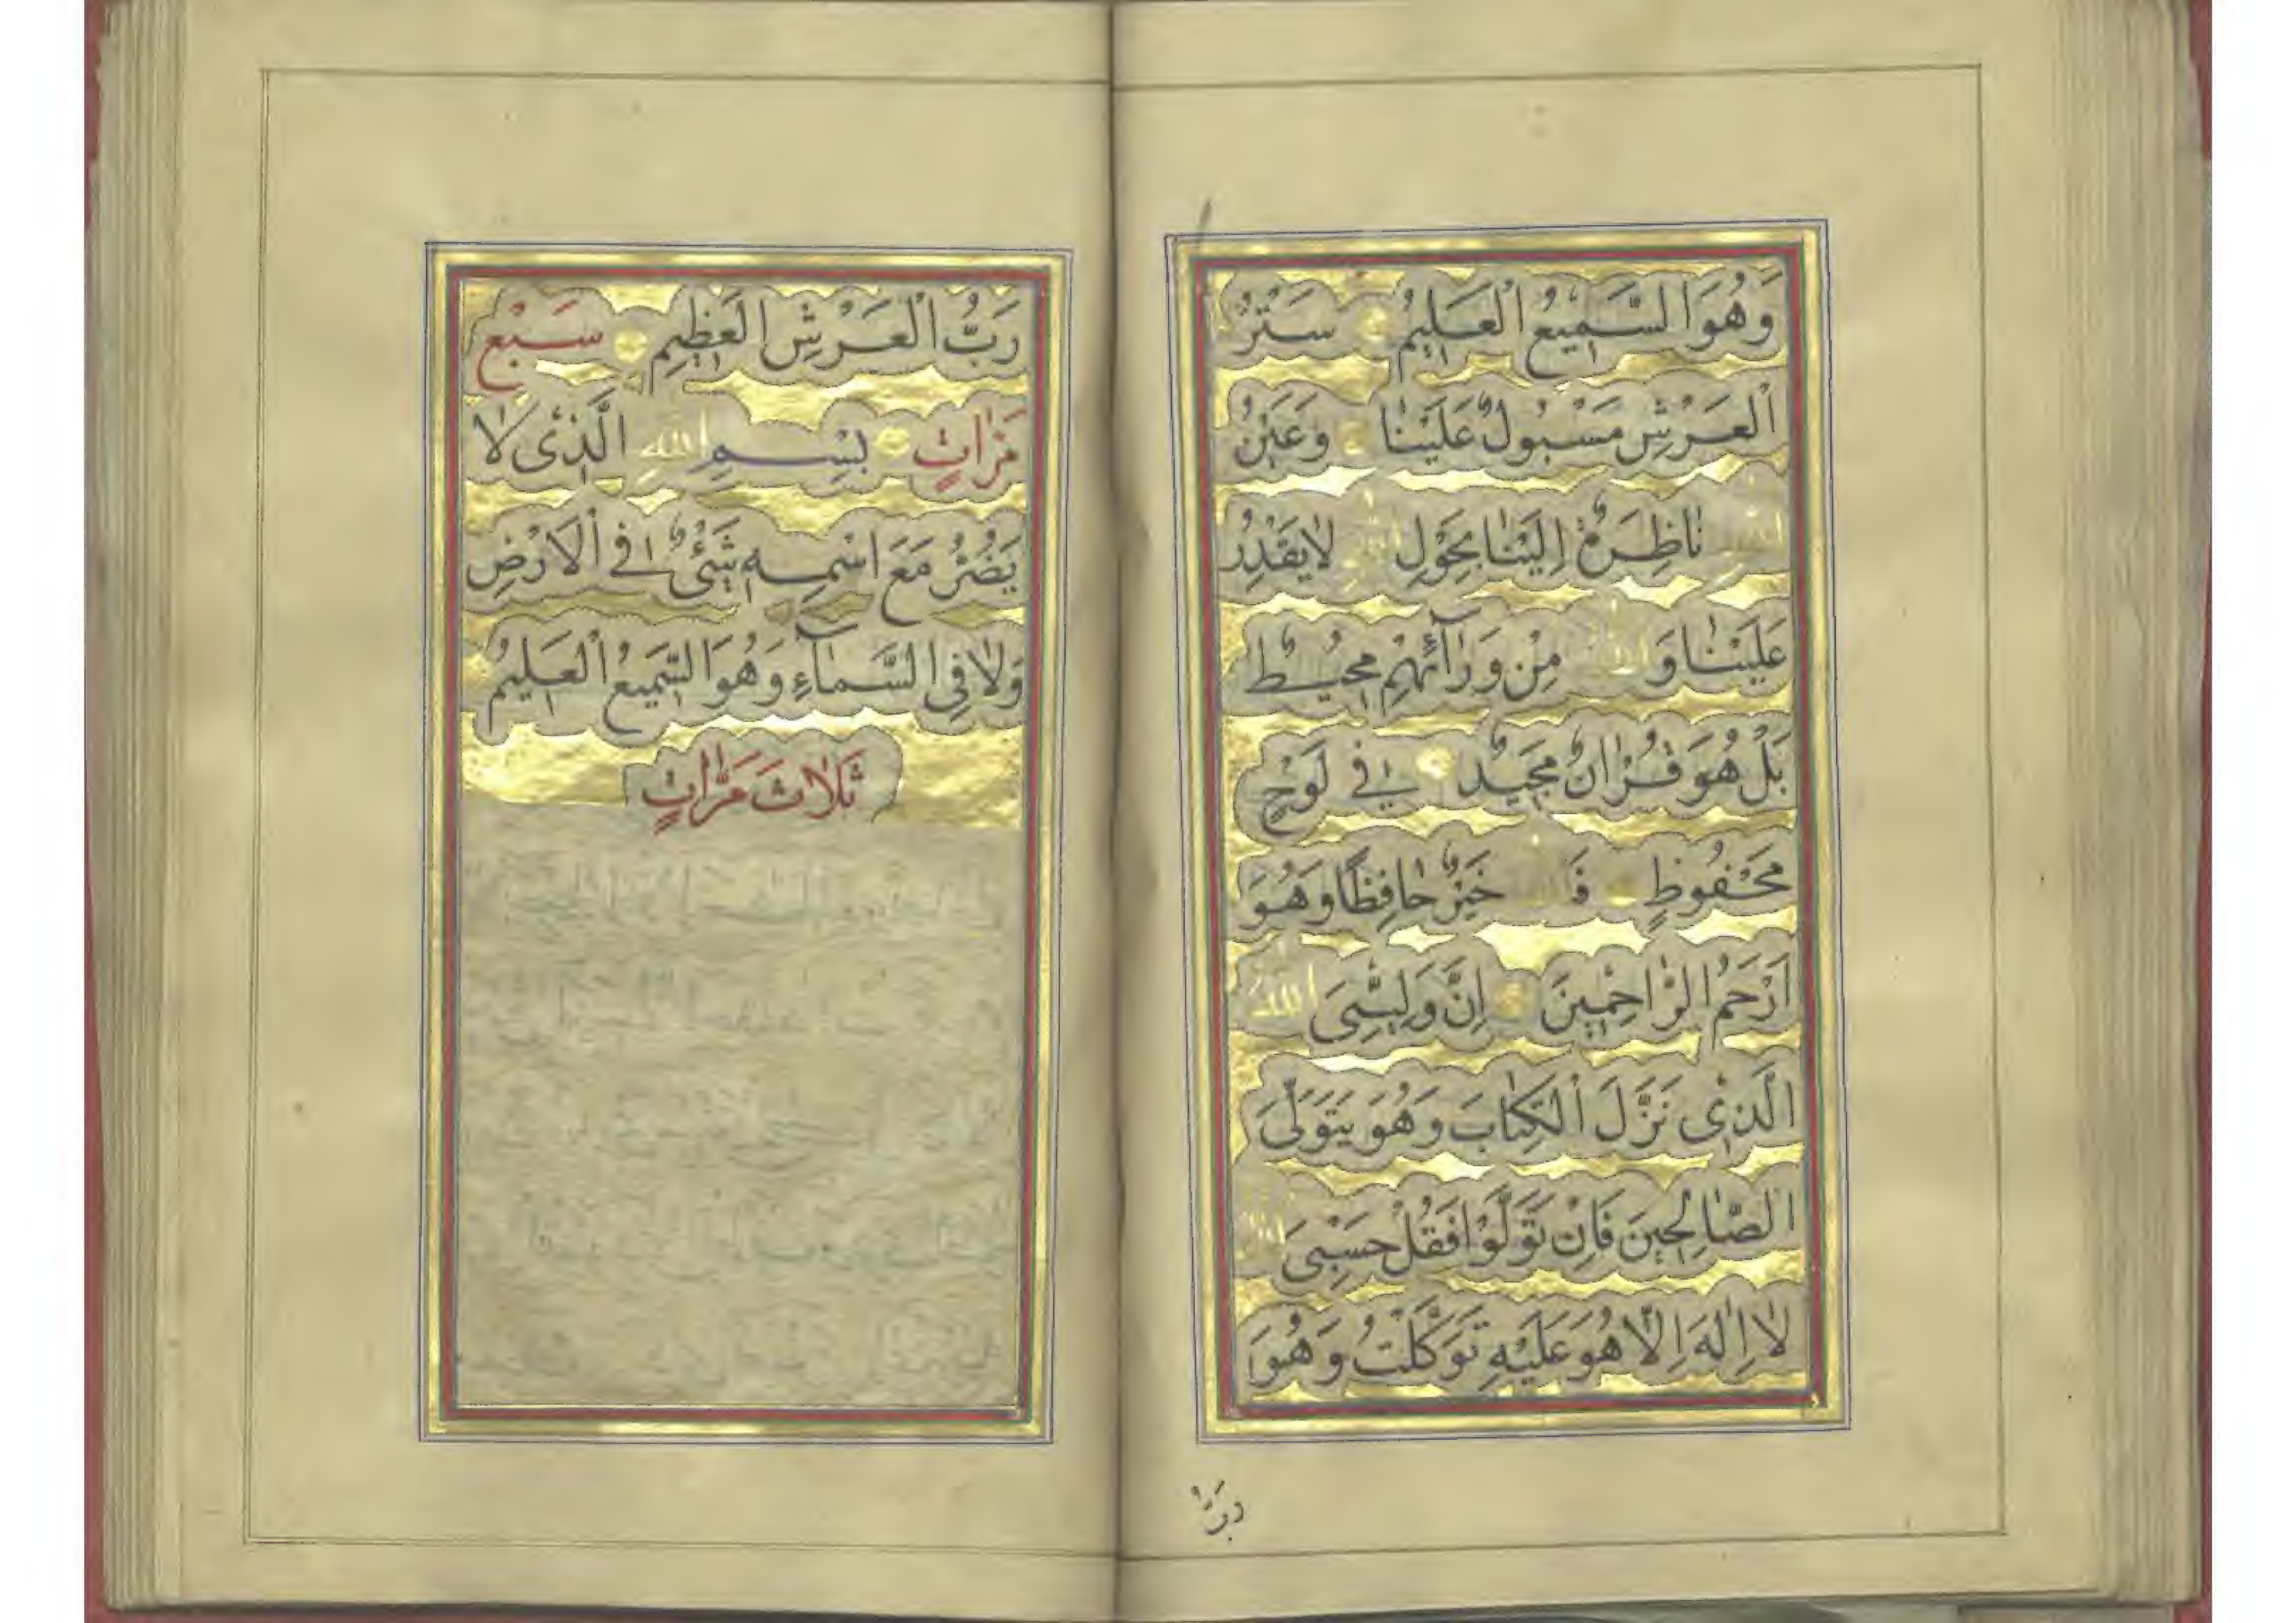 وَهُوَ السَّمِيعُ الْعَلِيمُ سَتْرُ
الْعَرْشِ مَسْبُولٌ عَلَيْنَا وَعَيْنُ
اللهِ نَاظِرَةٌ اِلَيْنَا بِحَوْلِ اللهِ لَا يَقْدِرُ
عَلَيْنَا وَ اللهُ مِنْ وَرَآئِهِمْ مُحِيطٌ
بَلْ هُوَ قُرْاٰنٌ مَجِيدٌ فِي لَوْحٍ
مَحْفُوظٍ فَاللهُ خَيْرٌ حَافِظًا وَهُوَ
اَرْحَمُ الرَّاحِمِينَ اِنَّ وَلِيِّيَ اللهُ
الَّذِي نَزَّلَ الْكِتَابَ وَهُوَ يَتَوَلَّى
الصَّالِحِينَ فَاِنْ تَوَلَّوْا فَقُلْ حَسْبِيَ اللهُ
لَا اِلٰهَ اِلَّا هُوَ عَلَيْهِ تَوَكَّلْتُ وَهُوَ
رَبُّ
رَبُّ الْعَرْشِ الْعَظِيمِ سَبْعَ
مَرَّاتٍ بِسْمِ اللهِ الَّذِي لَا
يَضُرُّ مَعَ اسْمِهِ شَيْءٌ فِي الْاَرْضِ
وَلَا فِي السَّمَآءِ وَهُوَ السَّمِيعُ الْعَلِيمُ
ثَلَاثَ مَرَّاتٍ